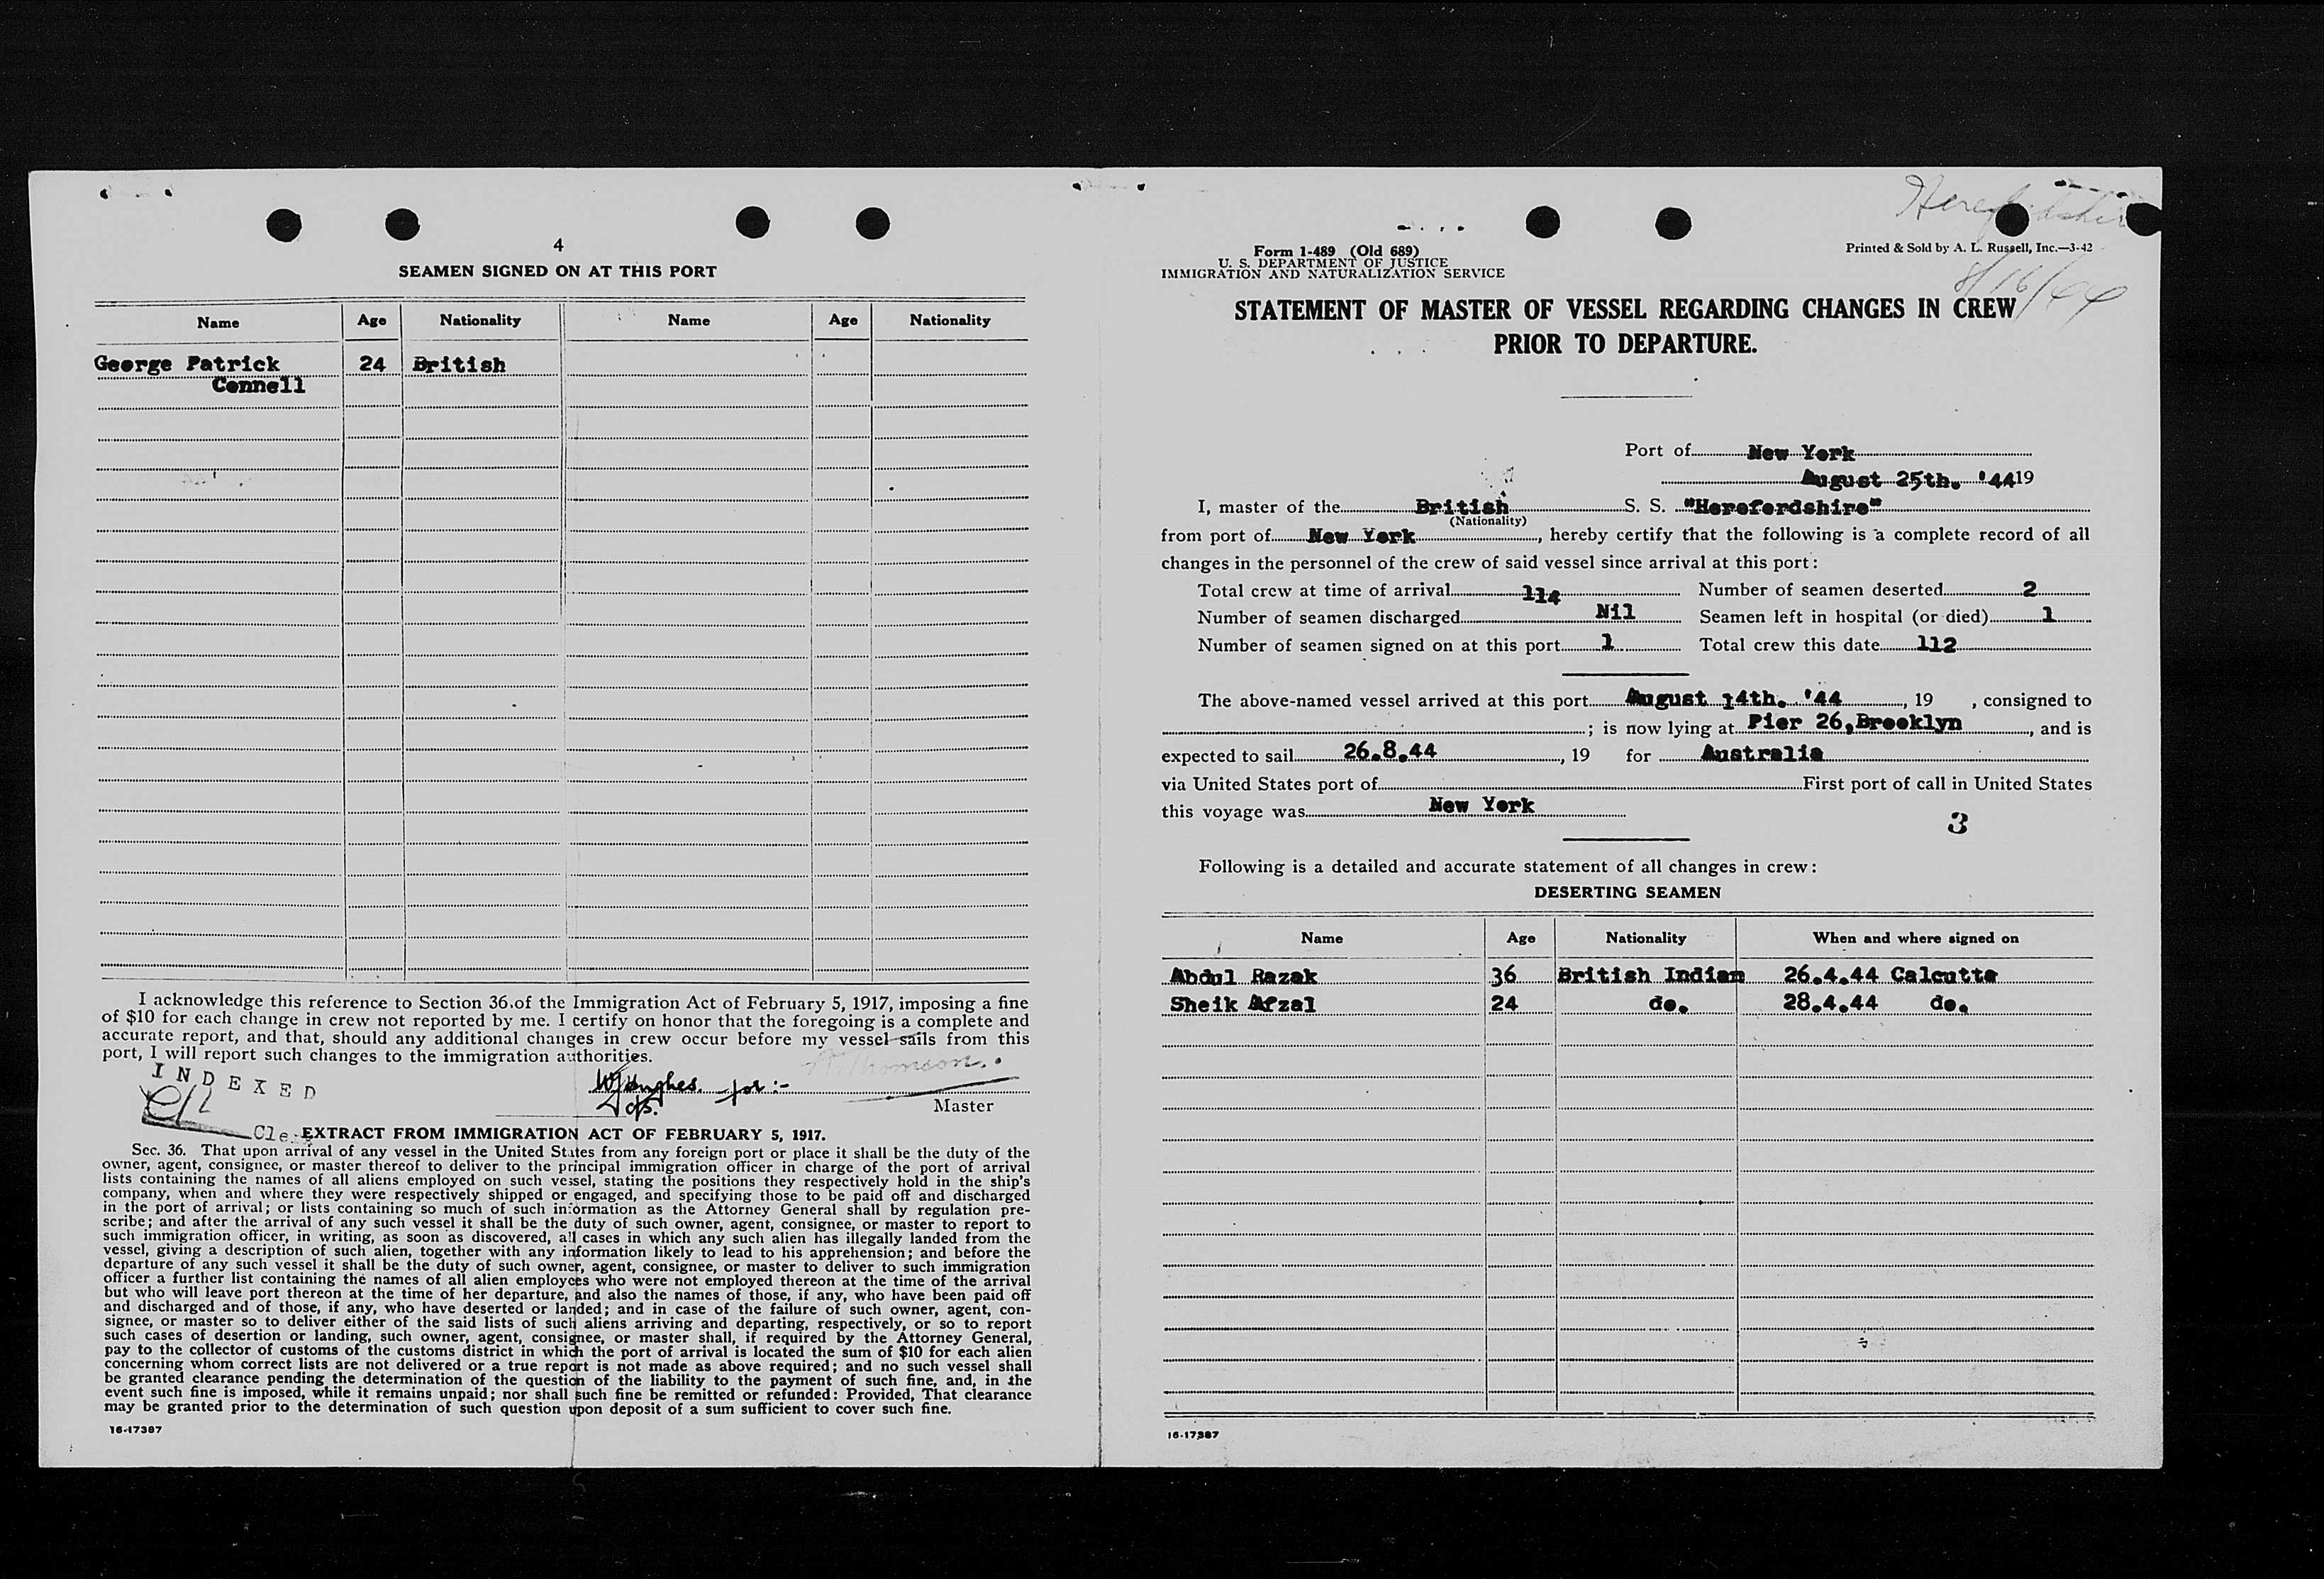 4
SEAMEN SIGNED ON AT THIS PORT
Name Age Nationality Name Age Nationality
George Patrick 24 British
Connell
I acknowledge this reference to Section 36 of the Immigration Act of February 5, 1917, imposing a fine
of $10 for each change in crew not reported by me. I certify on honor that the foregoing is a complete and
accurate report, and that, should any additional changes in crew occur before my vessel sails from this
port, I will report such changes to the immigration authorities.
INDEXED
WJHughes for:-
Master
EXTRACT FROM IMMIGRATION ACT OF FEBRUARY 5, 1917.
Sec. 36. That upon arrival of any vessel in the United States from any foreign port or place it shall be the duty of the
owner, agent, consignee, or master thereof to deliver to the principal immigration officer in charge of the port of arrival
lists containing the names of all aliens employed on such vessel, stating the positions they respectively hold in the ship's
company, when and where they were respectively shipped or engaged, and specifying those to be paid off and discharged
in the port of arrival; or lists containing so much of such information as the Attorney General shall by regulation pre-
scribe; and after the arrival of any such vessel it shall be the duty of such owner, agent, consignee, or master to report to
such immigration officer, in writing, as soon as discovered, all cases in which any such alien has illegally landed from the
vessel, giving a description of such alien, together with any information likely to lead to his apprehension; and before the
departure of any such vessel it shall be the duty of such owner, agent, consignee, or master to deliver to such immigration
officer a further list containing the names of all alien employees who were not employed thereon at the time of the arrival
but who will leave port thereon at the time of her departure, and also the names of those, if any, who have been paid off
and discharged and of those, if any, who have deserted or landed; and in case of the failure of such owner, agent, con-
signee, or master so to deliver either of the said lists of such aliens arriving and departing, respectively, or so to report
such cases of desertion or landing, such owner, agent, consignee, or master shall, if required by the Attorney General,
pay to the collector of customs of the customs district in which the port of arrival is located the sum of $10 for each alien
concerning whom correct lists are not delivered or a true report is not made as above required; and no such vessel shall
be granted clearance pending the determination of the question of the liability to the payment of such fine, and, in the
event such fine is imposed, while it remains unpaid; nor shall such fine be remitted or refunded: Provided, That clearance
may be granted prior to the determination of such question upon deposit of a sum sufficient to cover such fine.
16-17387
Form 1-489 (Old 689)
U. S. DEPARTMENT OF JUSTICE
IMMIGRATION AND NATURALIZATION SERVICE
Printed & Sold by A. L. Russell, Inc.—3-42
8/16/44
STATEMENT OF MASTER OF VESSEL REGARDING CHANGES IN CREW
PRIOR TO DEPARTURE.
Port of New York
August 25th. '44 19
I, master of the British S. S. "Herefordshire"
(Nationality)
from port of New York, hereby certify that the following is a complete record of all
changes in the personnel of the crew of said vessel since arrival at this port:
Total crew at time of arrival 114 Number of seamen deserted 2
Number of seamen discharged Nil Seamen left in hospital (or died) 1
Number of seamen signed on at this port 1 Total crew this date 112
The above-named vessel arrived at this port August 14th. '44, 19 , consigned to
; is now lying at Pier 26, Brooklyn, and is
expected to sail 26.8.44, 19 for Australia
via United States port of First port of call in United States
this voyage was New York
3
Following is a detailed and accurate statement of all changes in crew:
DESERTING SEAMEN
Name Age Nationality When and where signed on
Abdul Razak 36 British Indian 26.4.44 Calcutta
Sheik Afzal 24 do. 28.4.44 do.
16-17387